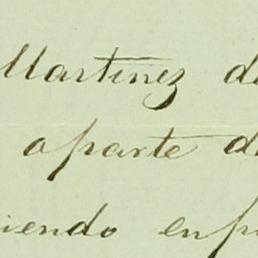 Martinez d
aparte d
iendo enp